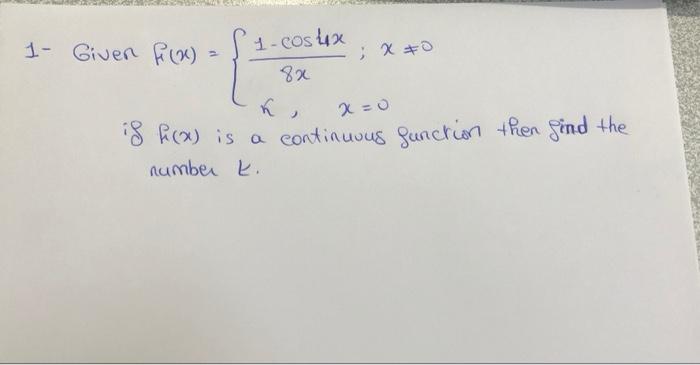 1- Given f(x) = { 1-cos4x / 8x ; x ≠ 0
k, x = 0
if f(x) is a continuous function then find the
number k.